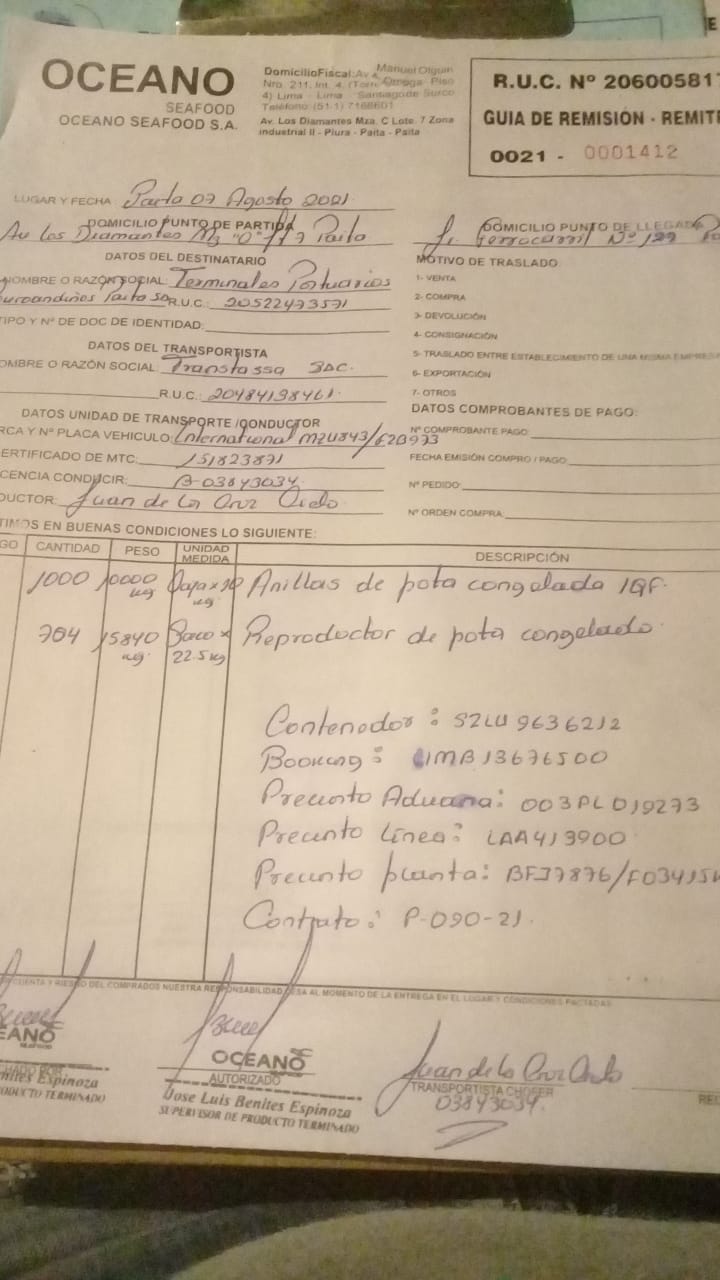 OCEANO
SEAFOOD
OCEANO SEAFOOD S.A.
Domicilio Fiscal: Av. Manuel Olguin
Nro. 211, Int. 4, (Torre Omega - Piso
4) Lima - Lima - Santiago de Surco
Teléfono: (51-1) 7168601
Av. Los Diamantes Mza. C Lote. 7 Zona
industrial II - Piura - Paita - Paita
R.U.C. Nº 20600581
GUIA DE REMISIÓN - REMIT
0021 - 0001412
LUGAR Y FECHA Paita 07 Agosto 2021
DOMICILIO PUNTO DE PARTIDA
Av los Diamantes Paita
DOMICILIO PUNTO DE LLEGADA
Ferrocarril Nº 127
DATOS DEL DESTINATARIO
NOMBRE O RAZÓN SOCIAL: Terminales Portuarios
euroandinos Paita SA R.U.C.: 20522473571
TIPO Y Nº DE DOC DE IDENTIDAD:
DATOS DEL TRANSPORTISTA
OMBRE O RAZÓN SOCIAL: Transtassa SAC.
R.U.C.: 20484138461
DATOS UNIDAD DE TRANSPORTE /CONDUCTOR
RCA Y Nº PLACA VEHICULO: International
ERTIFICADO DE MTC: 151823871
CENCIA CONDUCIR: B-03843034
DUCTOR: Juan de La Cruz
MOTIVO DE TRASLADO
1- VENTA
2- COMPRA
3- DEVOLUCIÓN
4- CONSIGNACIÓN
5- TRASLADO ENTRE ESTABLECIMIENTO DE UNA MISMA EMPRESA
6- EXPORTACIÓN
7- OTROS
DATOS COMPROBANTES DE PAGO:
Nº COMPROBANTE PAGO:
FECHA EMISIÓN COMPRO / PAGO:
Nº PEDIDO:
Nº ORDEN COMPRA:
TIMOS EN BUENAS CONDICIONES LO SIGUIENTE:
GO CANTIDAD PESO UNIDAD MEDIDA DESCRIPCIÓN
1000 10000 kg Caja x 10 kg Anillas de pota congelada IQF.
704 15840 kg. Saco x 22.5 kg Reproductor de pota congelado.
Contenedor: SZLU 9636212
Booking: LIMB13676500
Precinto Aduana: 003PL019273
Precinto Línea: LAA413900
Precinto planta: BF37876/
Contrato: P-090-21.
CUENTA Y RIESGO DEL COMPRADOS NUESTRA RESPONSABILIDAD CESA AL MOMENTO DE LA ENTREGA EN EL LUGAR Y CONDICIONES PACTADAS
EANO
SEAFOOD
nites Espinoza
ODUCTO TERMINADO
OCEANO
AUTORIZADO
Jose Luis Benites Espinoza
SUPERVISOR DE PRODUCTO TERMINADO
Juan de la Cruz
TRANSPORTISTA CHOFER
03843034.
REC